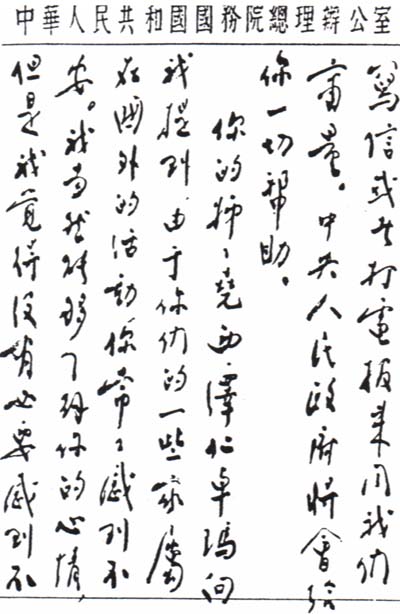 中華人民共和國國務院總理辦公室
寫信或者打電報來同我們
商量。中央人民政府將會給
你一切幫助。
你的姊〻堯西澤仁卓瑪向
我提到由于你们的一些家屬
在國外的活動你常〻感到不
安。我当然能夠了解你的心情，
但是我覺得沒有必要感到不